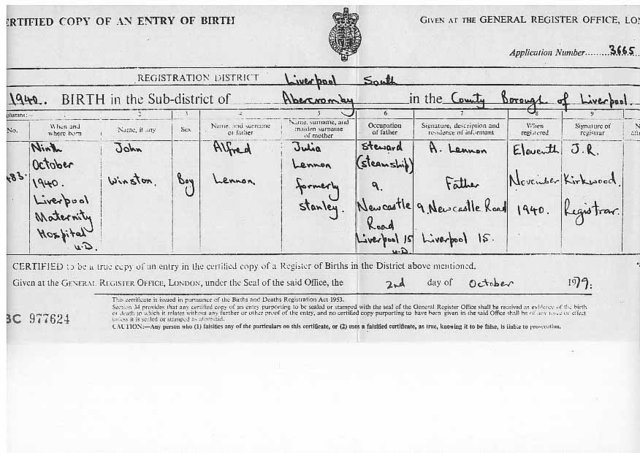 ERTIFIED COPY OF AN ENTRY OF BIRTH
GIVEN AT THE GENERAL REGISTER OFFICE, LO
Application Number 3665
REGISTRATION DISTRICT Liverpool South
1940. BIRTH in the Sub-district of Abercromby in the County Borough of Liverpool
1 2 3 4 5 6 7 8 9
No.
When and where born
Name, if any
Sex
Name, and surname of father
Name, surname, and maiden surname of mother
Occupation of father
Signature, description and residence of informant
When registered
Signature of registrar
483.
Ninth
October
1940.
Liverpool
Maternity
Hospital
U.D.
John
Winston.
Boy
Alfred
Lennon
Julia
Lennon
formerly
Stanley.
Steward
(Steamship)
9.
Newcastle
Road
Liverpool 15
U.D
A. Lennon
Father
9, Newcastle Road
Liverpool 15.
Eleventh
November
1940.
J.R.
Kirkwood.
Registrar.
CERTIFIED to be a true copy of an entry in the certified copy of a Register of Births in the District above mentioned.
Given at the GENERAL REGISTER OFFICE, LONDON, under the Seal of the said Office, the 2nd day of October 1979.
BC 977624
This certificate is issued in pursuance of the Births and Deaths Registration Act 1953.
Section 34 provides that any certified copy of an entry purporting to be sealed or stamped with the seal of the General Register Office shall be received as evidence of the birth
or death to which it relates without any further or other proof of the entry, and no certified copy purporting to have been given in the said Office shall be of any force or effect
unless it is sealed or stamped as aforesaid.
CAUTION:—Any person who (1) falsifies any of the particulars on this certificate, or (2) uses a falsified certificate, as true, knowing it to be false, is liable to prosecution.